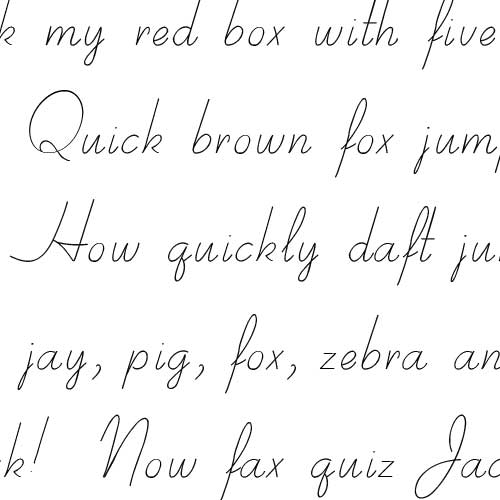 k my red box with five
Quick brown fox jump
How quickly daft ju
jay, pig, fox, zebra an
k! Now fax quiz Jac